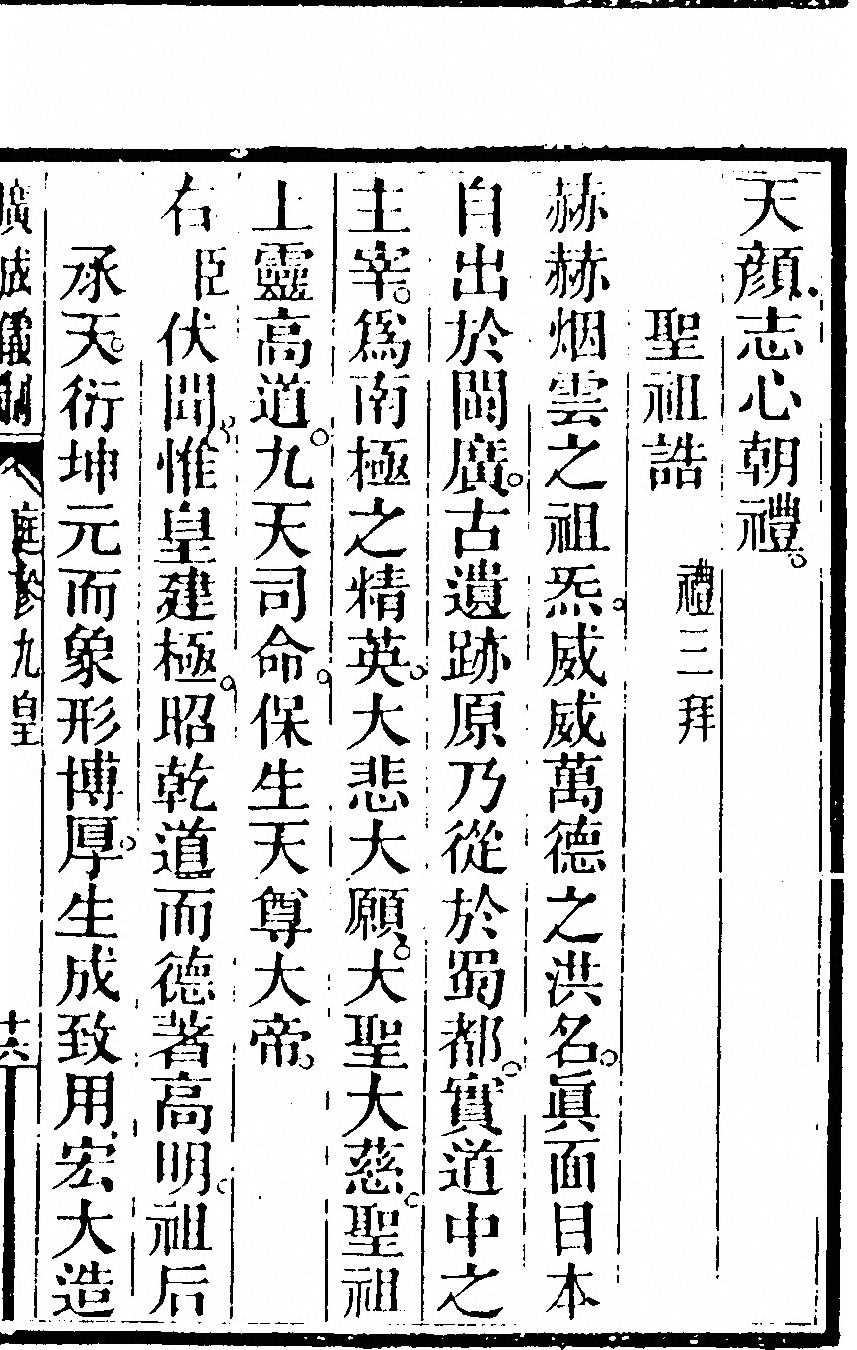 天顏志心朝禮。
聖祖誥 禮三拜
赫赫烟雲之祖炁。威威萬德之洪名。眞面目本
自出於閬廣。古遺跡原乃從於蜀都。實道中之
主宰。爲南極之精英。大悲大願。大聖大慈。聖祖
上靈高道。九天司命。保生天尊大帝。
右臣伏聞。惟皇建極。昭乾道而德著高明。祖后
承天。衍坤元而象形博厚。生成致用宏大造
廣成儀制 庭參九皇 十六